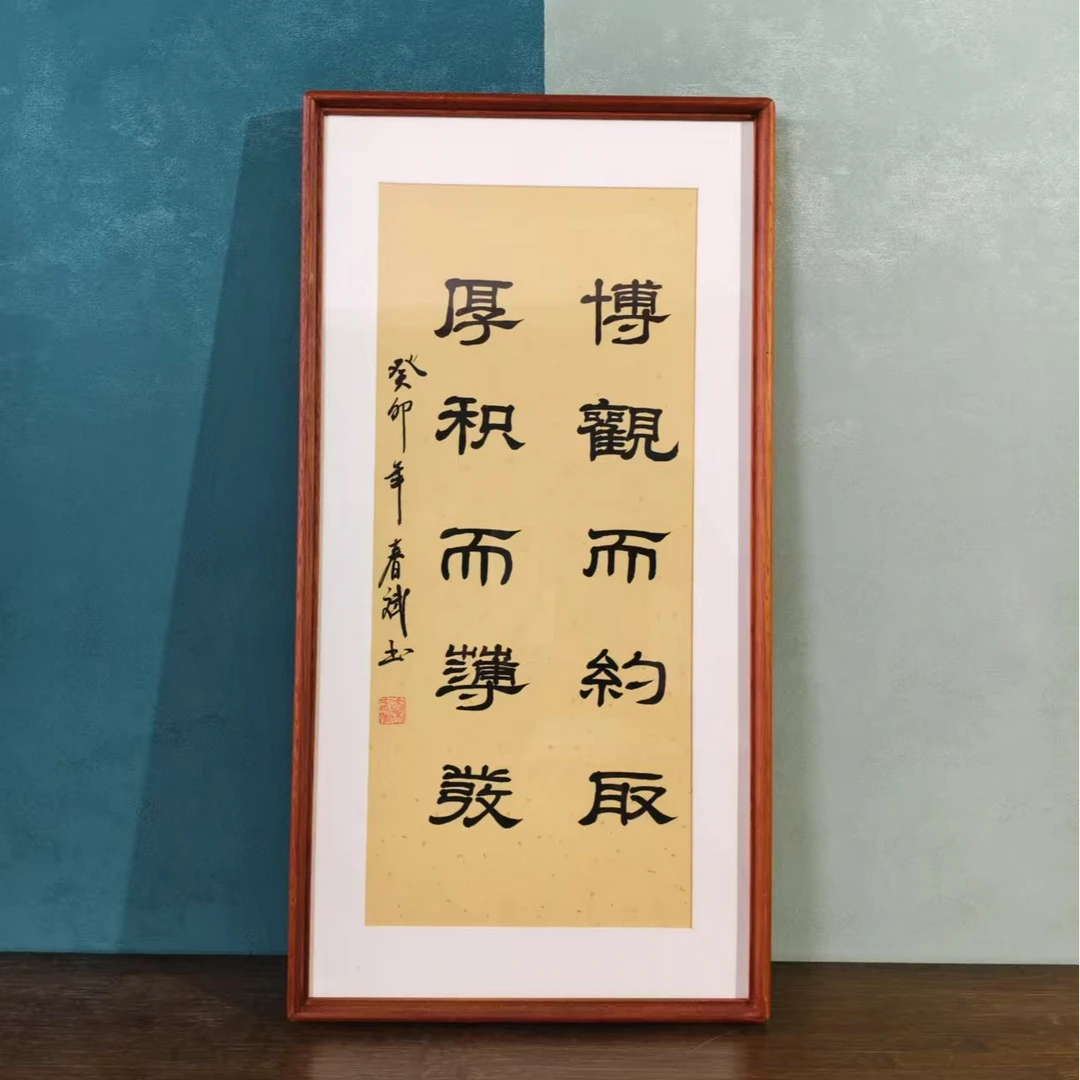 博觀而約取
厚积而薄發
癸卯年春斌书